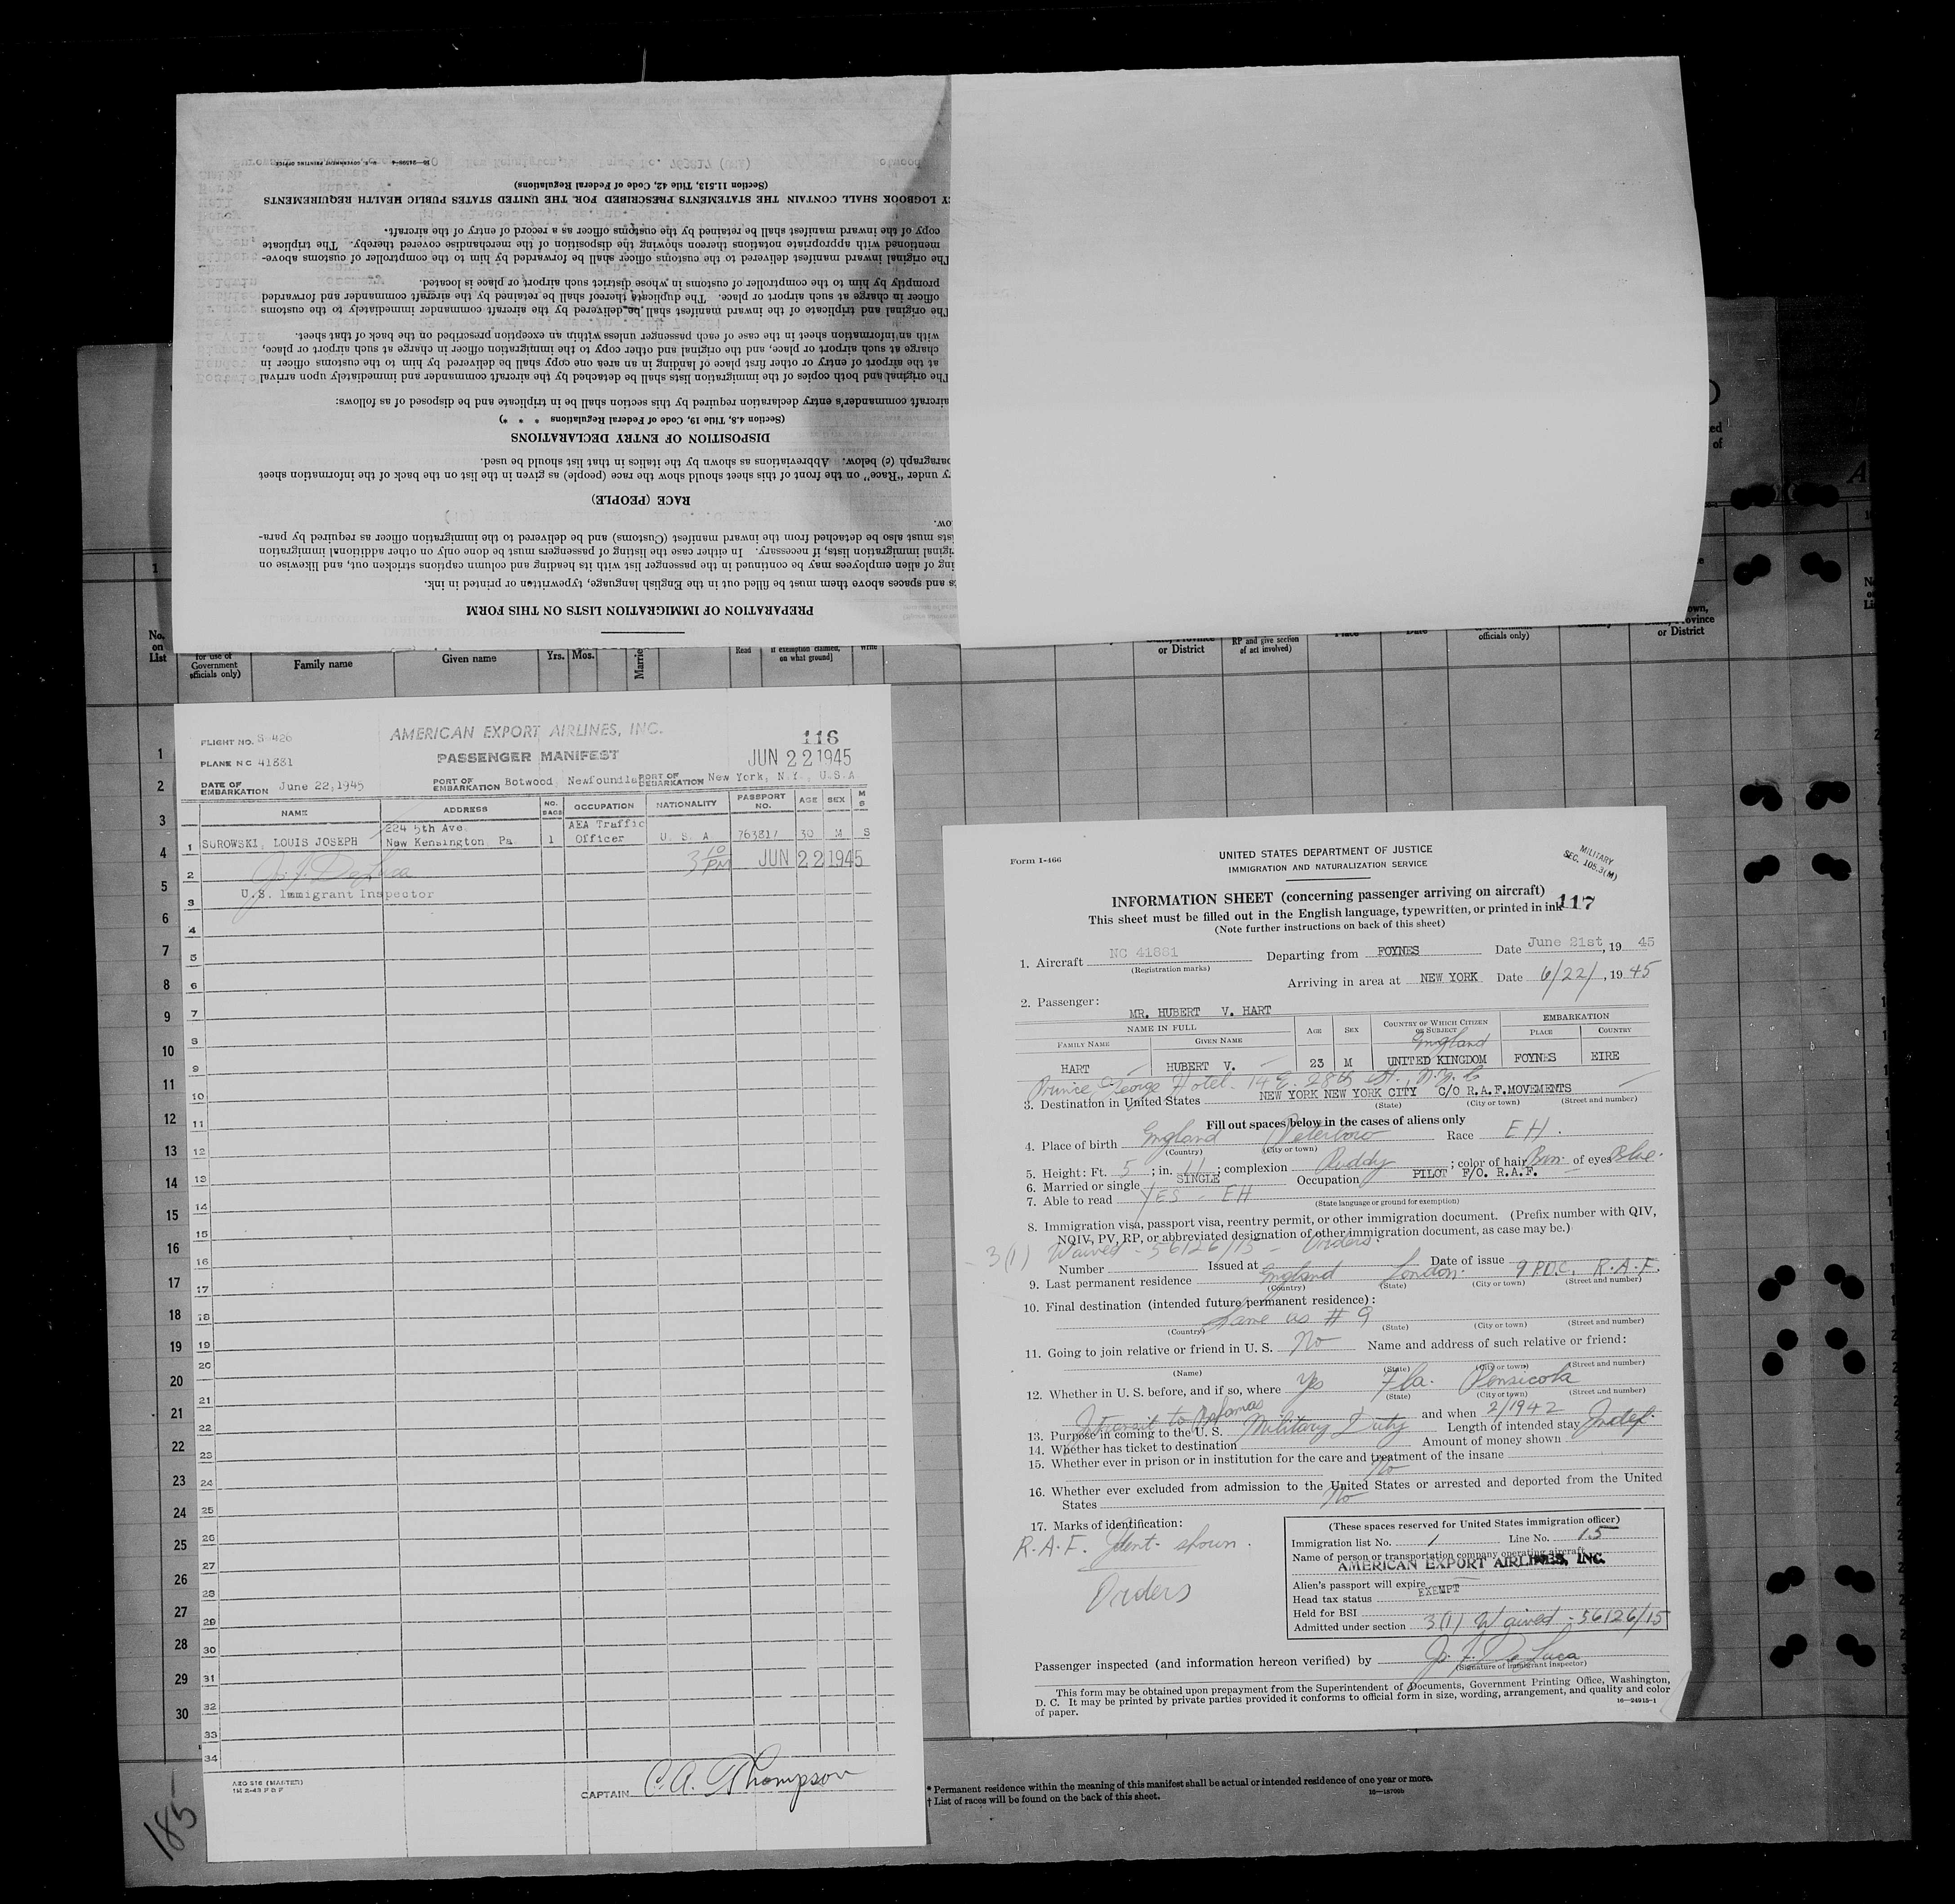 16—24598-4 U. S. GOVERNMENT PRINTING OFFICE
(Section 11.513, Title 42, Code of Federal Regulations)
LOGBOOK SHALL CONTAIN THE STATEMENTS PRESCRIBED FOR THE UNITED STATES PUBLIC HEALTH REQUIREMENTS
copy of the inward manifest shall be retained by the customs officer as a record of entry of the aircraft.
mentioned with appropriate notations thereon showing the disposition of the merchandise covered thereby. The triplicate
The original inward manifest delivered to the customs officer shall be forwarded by him to the comptroller of customs above-
promptly by him to the comptroller of customs in whose district such airport or place is located.
officer in charge at such airport or place. The duplicate thereof shall be retained by the aircraft commander and forwarded
The original and triplicate of the inward manifest shall be delivered by the aircraft commander immediately to the customs
with an information sheet in the case of each passenger unless within an exception prescribed on the back of that sheet.
charge at such airport or place, and the original and other copy to the immigration officer in charge at such airport or place,
at the airport of entry or other first place of landing in an area one copy shall be delivered by him to the customs officer in
The original and both copies of the immigration lists shall be detached by the aircraft commander and immediately upon arrival
aircraft commander's entry declaration required by this section shall be in triplicate and be disposed of as follows:
(Section 4.8, Title 19, Code of Federal Regulations * * *)
DISPOSITION OF ENTRY DECLARATIONS
paragraph (c) below. Abbreviations as shown by the italics in that list should be used.
under "Race" on the front of this sheet should show the race (people) as given in the list on the back of the information sheet
RACE (PEOPLE)
must also be detached from the inward manifest (Customs) and be delivered to the immigration officer as required by para-
immigration lists, if necessary. In either case the listing of passengers must be done only on other additional immigration
of alien employees may be continued in the passenger list with its heading and column captions stricken out, and likewise on
and spaces above them must be filled out in the English language, typewritten or printed in ink.
PREPARATION OF IMMIGRATION LISTS ON THIS FORM
No. on List
for use of Government officials only)
Family name
Given name
Yrs. Mos.
Read
if exemption claimed, on what ground]
or District
RP and give section of act involved)
officials only)
or District
AMERICAN EXPORT AIRLINES, INC.
PASSENGER MANIFEST
116
JUN 22 1945
FLIGHT NO. S-426
PLANE NC 41881
DATE OF EMBARKATION June 22, 1945
PORT OF EMBARKATION Botwood, Newfoundla
PORT OF DEBARKATION New York, N.Y., U.S.A
NAME ADDRESS NO. BAGS OCCUPATION NATIONALITY PASSPORT NO. AGE SEX M S
224 5th Ave. AEA Traffic
1 SUROWSKI, LOUIS JOSEPH New Kensington, Pa 1 Officer U. S. A. 763817 30 M S
3 10 PM JUN 22 1945
J. F. De Luca
U.S. Immigrant Inspector
CAPTAIN C. A. Thompson
185
Form I-466
UNITED STATES DEPARTMENT OF JUSTICE
IMMIGRATION AND NATURALIZATION SERVICE
MILITARY
SEC. 105.3(M)
INFORMATION SHEET (concerning passenger arriving on aircraft)
117
This sheet must be filled out in the English language, typewritten, or printed in ink
(Note further instructions on back of this sheet)
1. Aircraft NC 41881 Departing from FOYNES Date June 21st, 19 45
(Registration marks)
Arriving in area at NEW YORK Date 6/22/, 19 45
2. Passenger:
MR. HUBERT V. HART
NAME IN FULL AGE SEX COUNTRY OF WHICH CITIZEN OR SUBJECT EMBARKATION
FAMILY NAME GIVEN NAME PLACE COUNTRY
England
HART HUBERT V. 23 M UNITED KINGDOM FOYNES EIRE
Prince George Hotel. 14 E. 28th St., N.Y.C
3. Destination in United States NEW YORK NEW YORK CITY C/O R.A.F.MOVEMENTS
(State) (City or town) (Street and number)
Fill out spaces below in the cases of aliens only
4. Place of birth England Peterboro Race EH.
(Country) (City or town)
5. Height: Ft. 5; in. 11; complexion Ruddy; color of hair Brn. of eyes Blue.
6. Married or single SINGLE Occupation PILOT F/O. R.A.F.
7. Able to read YES - EH
(State language or ground for exemption)
8. Immigration visa, passport visa, reentry permit, or other immigration document. (Prefix number with QIV,
NQIV, PV, RP, or abbreviated designation of other immigration document, as case may be.)
3(1) Waived - 56126/15 - Orders.
Number Issued at Date of issue
9. Last permanent residence England London. 9 P.D.C. R.A.F.
(Country) (State) (City or town) (Street and number)
10. Final destination (intended future permanent residence):
Same as # 9
(Country) (State) (City or town) (Street and number)
11. Going to join relative or friend in U. S. No Name and address of such relative or friend:
(Name) (State) (City or town) (Street and number)
12. Whether in U. S. before, and if so, where Yes Fla. Pensicola
(State) (City or town) (Street and number)
and when 2/1942
Intransit to Bahamas
13. Purpose in coming to the U. S. Military Duty Length of intended stay Indef.
14. Whether has ticket to destination Amount of money shown
15. Whether ever in prison or in institution for the care and treatment of the insane
No
16. Whether ever excluded from admission to the United States or arrested and deported from the United
States No
17. Marks of identification:
R.A.F. Ident. shown.
Orders
(These spaces reserved for United States immigration officer)
Immigration list No. 1 Line No. 15
Name of person or transportation company operating aircraft
AMERICAN EXPORT AIRLINES, INC.
Alien's passport will expire
Head tax status EXEMPT
Held for BSI
Admitted under section 3(1) Waived - 56126/15
Passenger inspected (and information hereon verified) by J. F. De Luca
(Signature of immigrant inspector)
This form may be obtained upon prepayment from the Superintendent of Documents, Government Printing Office, Washington,
D. C. It may be printed by private parties provided it conforms to official form in size, wording, arrangement, and quality and color
of paper.
16—24915-1
* Permanent residence within the meaning of this manifest shall be actual or intended residence of one year or more.
† List of races will be found on the back of this sheet.